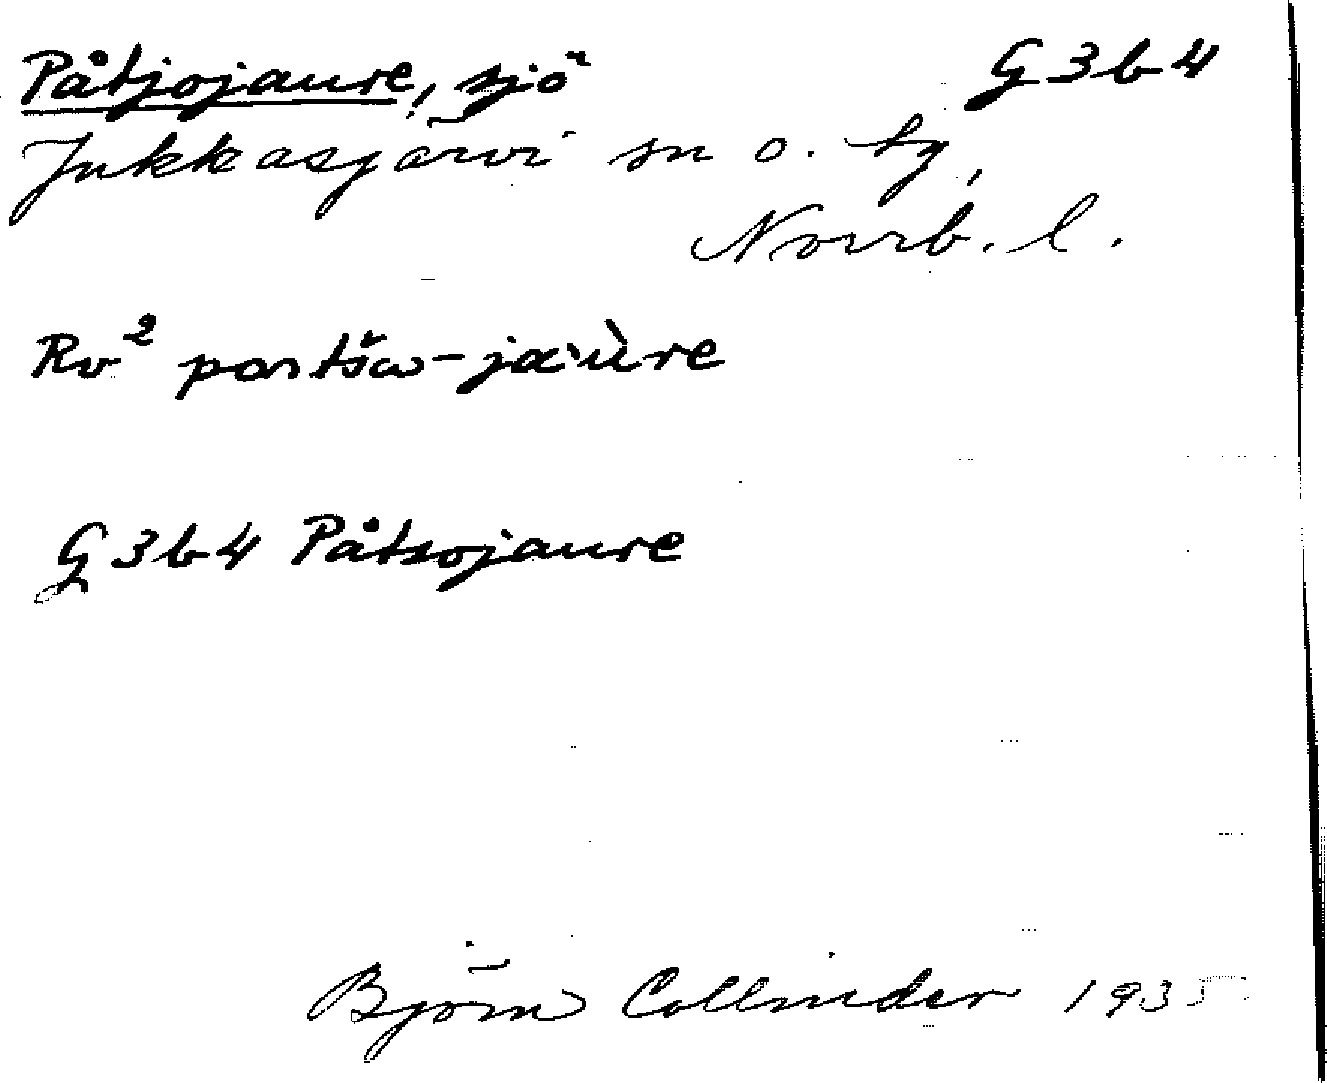 Påtjojaure, sjö G3b4
Jukkasjärvi sn o. tg,
Norrb. l.
Rv² 
G3b4 Påtsojaure
Björn Collinder 1935